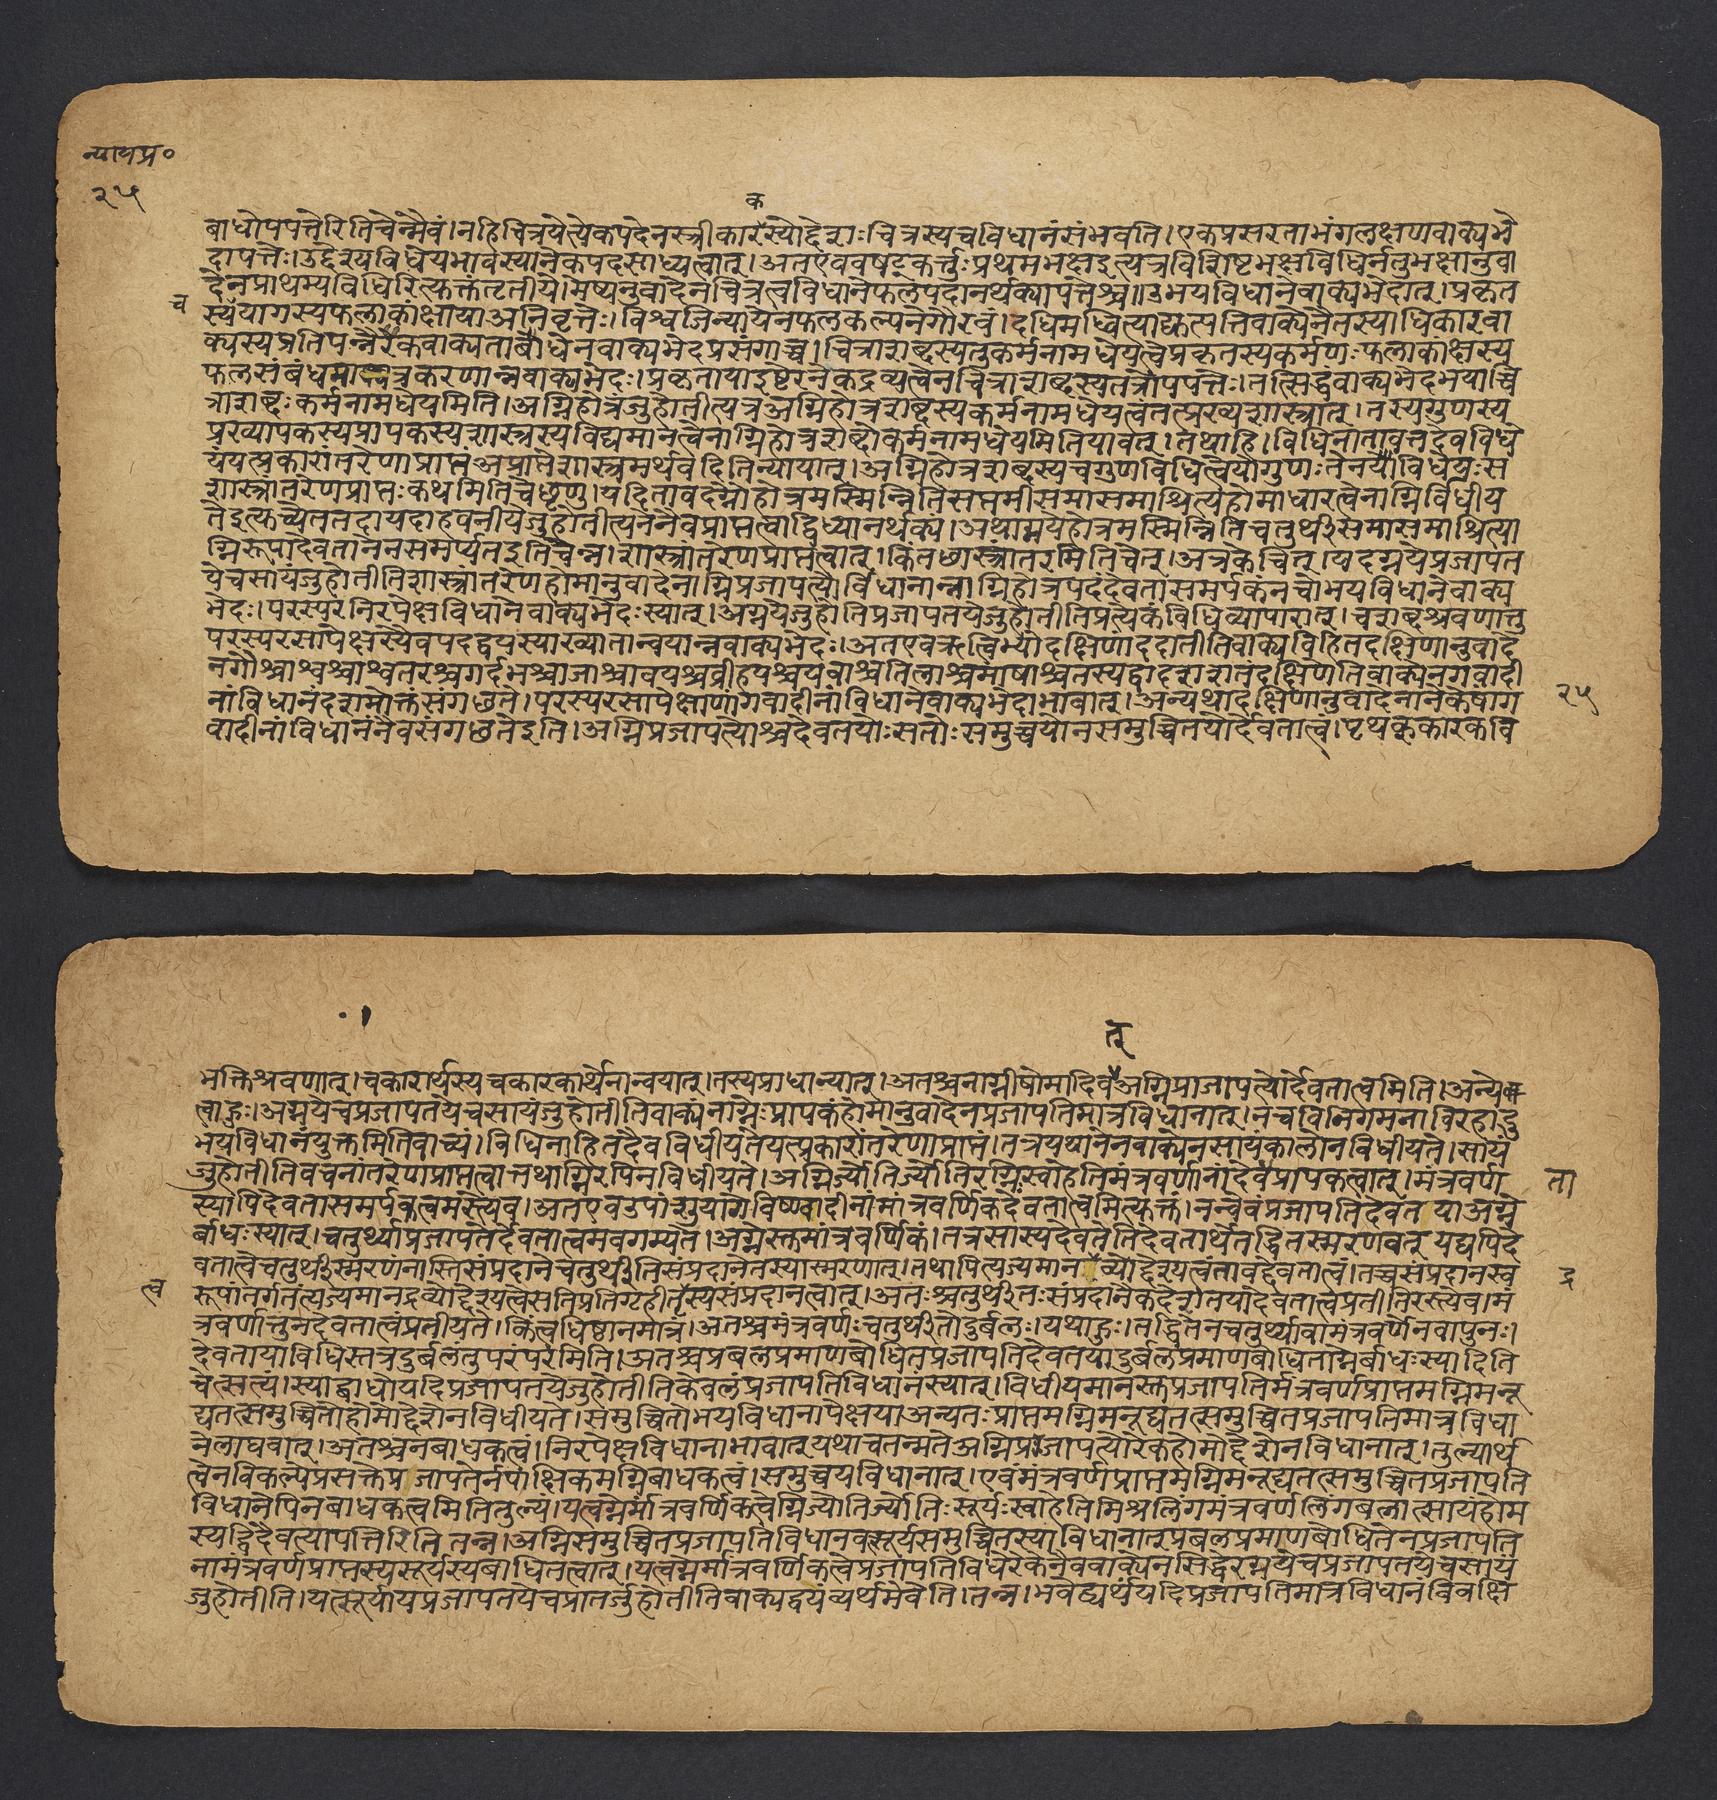 न्यायप्र०
२५
क
बाधोपपत्तेरितिचेन्मैवं।नहिचित्रयेत्येकपदेनस्त्रीकारस्योद्देशःचित्रस्यचविधानंसंभवति।एकप्रसरताभंगलक्षणवाक्यभे
दापत्तेः।उद्देश्यविधेयभावस्यानेकपदसाध्यत्वात्।अतएववषट्कर्त्तुःप्रथमभक्षइत्यत्रविशिष्टभक्षविधिर्नतुभक्षानुवा
देनप्राथम्यविधिरित्युक्तंतृतीये।मेष्यनुवादेनचित्रत्वविधानेफलपदानर्थक्यापत्तेश्च॥उभयविधानेवाक्यभेदात्।प्रकृत
च
स्ययागस्यफलाकांक्षायाअनिवृत्तेः।विश्वजिन्यायेनफलकल्पनेगौरवं।दधिमध्वित्याद्युत्पत्तिवाक्येनैतस्याधिकारवा
क्यस्यप्रतिपन्नैरेकवाक्यताबाधेनवाक्यभेदप्रसंगाच्च।चित्राशब्दस्यतुकर्मनामधेयत्वेप्रकृतस्यकर्मणःफलाकांक्षस्य
फलसंबंधमात्रकरणान्नवाक्यभेदः।प्रकृतायाइष्टेरनेकद्रव्यत्वेनचित्राशब्दस्यतत्रोपपत्तेः।तत्सिद्धंवाक्यभेदभयाच्चि
त्राशब्दःकर्मनामधेयमिति।अग्निहोत्रंजुहोतीत्यत्रअग्निहोत्रशब्दस्यकर्मनामधेयत्वंतत्प्रख्यशास्त्रात्।तस्यगुणस्य
प्रख्यापकस्यप्रापकस्यशास्त्रस्यविद्यमानत्वेनाग्निहोत्रशब्दोकर्मनामधेयमितियावत्।तथाहि।विधिनातावत्तदेवविधे
यंयत्प्रकारांतरेणाप्राप्तंअप्राप्तेशास्त्रमर्थवदितिन्यायात्।अग्निहोत्रशब्दस्यचगुणविधित्वेयोगुणःतेनयोविधेयःस
शास्त्रांतरेणप्राप्तःकथमितिचेछृणु।यदितावदग्नौहोत्रमस्मिन्नितिसप्तमीसमासमाश्रित्यहोमाधारत्वेनाग्निर्विधीय
तेइत्युच्येततदायदाहवनीयेजुहोतीत्यनेनैवप्राप्तत्वाद्विध्यानर्थक्यं।अथाग्नयेहोत्रमस्मिन्नितिचतुर्थीसमासमाश्रित्या
ग्निरूपादेवतानेनसमर्प्यतइतिचेन्न।शास्त्रांतरेणप्राप्तत्वात्।किंतछास्त्रांतरमितिचेत्।अत्रकेचित्।यदग्नयेप्रजापत
येचसायंजुहोतीतिशास्त्रांतरेणहोमानुवादेनाग्निप्रजापत्योर्विधानान्नाग्निहोत्रपदंदेवतासमर्पकंनचोभयविधानेवाक्य
भेदः।परस्परनिरपेक्षविधानेवाक्यभेदःस्यात्।अग्नयेजुहोतिप्रजापतयेजुहोतीतिप्रत्येकंविधिव्यापारात्।चशब्दश्रवणात्तु
परस्परसापेक्षस्यैवपदद्वयस्याख्यातान्वयान्नवाक्यभेदः।अतएवऋत्विग्भ्योदक्षिणांददातीतिवाक्यविहितदक्षिणानुवादे
नगौश्चाश्वश्चाश्वतरश्चगर्दभश्चाजाश्चावयश्चव्रीहयश्चयवाश्चतिलाश्चमाषाश्चतस्यद्वादशशतंदक्षिणेतिवाक्येनगवादी
नांविधानंदशमोक्तंसंगछते।परस्परसापेक्षाणांगवादीनांविधानेवाक्यभेदाभावात्।अन्यथादक्षिणानुवादेनानेकेषांग
२५
वादीनांविधानंनैवसंगछतेइति।अग्निप्रजापत्योश्चदेवतयोःसतोःसमुच्चयोनसमुच्चितयोर्देवतात्वं।पृथक्कारकवि
त्
भक्तिश्रवणात्।चकारार्थस्यचकारकार्थेनान्वयात्।तस्यप्राधान्यात्।अतश्चनाग्नीषोमादिवअग्निप्राजापत्योर्देवतात्वमिति।अन्येत
त्वाहुः।अग्नयेचप्रजापतयेचसायंजुहोतीतिवाक्यंनाग्नेःप्रापकंहोमानुवादेनप्रजापतिमात्रविधानात्।नचविनिगमनाविरहादु
भयविधानंयुक्तमितिवाच्यं।विधिनाहितदेवविधीयतेयत्प्रकारांतरेणाप्राप्तं।तत्रयथानेनवाक्येनसायंकालोनविधीयते।सायं
जुहोतीतिवचनांतरेणप्राप्तत्वात्तथाग्निरपिनविधीयते।अग्निर्ज्योतिर्ज्योतिरग्निःस्वाहेतिमंत्रवर्णानांदेवप्रापकत्वात्।मंत्रवर्ण
ता
स्यापिदेवतासमर्पकत्वमस्त्येव।अतएवउपांशुयागेविष्ण्वादीनांमांत्रवर्णिकंदेवतात्वमित्युक्तं।नन्वेवंप्रजापतिदेवतयाअग्ने
र्बाधःस्यात्।चतुर्थ्याप्रजापतेर्देवतात्वमवगम्यते।अग्नेस्तुमांत्रवर्णिकं।तत्रसास्यदेवतेतिदेवतार्थेतद्धितस्मरणवत् यद्यपिदे
वतात्वेचतुर्थीस्मरणंनास्तिसंप्रदानेचतुर्थीतिसंप्रदानेतस्यास्मरणात्।तथापित्यज्यमानव्योद्देश्यत्वंतावद्देवतात्वं।तच्चसंप्रदानस्व
द्र
त्व
रूपांतर्गतंत्यज्यमानद्रव्योद्देश्यत्वेसतिप्रतिग्रहीतृस्यसंप्रदानत्वात्।अतःश्चतुर्थीतःसंप्रदानैकदेशतयादेवतात्वप्रतीतिरस्त्येव।मं
त्रवर्णात्तुनदेवतात्वंप्रतीयते।किंत्वधिष्ठानमात्रं।अतश्चमंत्रवर्णःचतुर्थीतोदुर्बलः।यथाहुः।तद्धितेनचतुर्थ्यावामंत्रवर्णेनवापुनः।
देवतायाविधिस्तत्रदुर्बलंतुपरंपरमिति।अतश्चप्रबलप्रमाणबोधितप्रजापतिदेवतयादुर्बलप्रमाणबोधिताग्नेर्बाधःस्यादिति
चेत्सत्यं।स्याद्बाधोयदिप्रजापतयेजुहोतीतिकेवलंप्रजापतिविधानंस्यात्।विधीयमानस्तुप्रजापतिर्मंत्रवर्णप्राप्तमग्निमनू
द्यतत्समुच्चितोहोमोद्देशेनविधीयते।समुच्चितोभयविधानापेक्षयाअन्यतःप्राप्तमग्निमनूद्यतत्समुच्चितप्रजापतिमात्रविधा
नेलाघवात्।अतश्चनबाधकत्वं।निरपेक्षविधानाभावात्यथाचतन्मतेअग्निप्राजापत्योरेकहोमोद्देशेनविधानात्।तुल्यार्थ
त्वेनविकल्पेप्रसक्तेप्रजापतेर्नपाक्षिकमग्निबाधकत्वं।समुच्चयविधानात्।एवंमंत्रवर्णप्राप्तमग्निमनूद्यतत्समुच्चितप्रजापति
विधानेपिनबाधकत्वमितितुल्यं।यत्वग्नेर्मांत्रवर्णिकत्वेग्निर्ज्योतिर्ज्योतिःसूर्यःस्वाहेतिमिश्रलिंगमंत्रवर्णलिंगबलात्सायंहोम
स्यद्विदैवत्यापत्तिरिति तन्न।अग्निसमुच्चितप्रजापतिविधानवत्सूर्यसमुच्चितस्याविधानात्प्रबलप्रमाणबोधितेनप्रजापति
नामंत्रवर्णप्राप्तस्यसूर्यस्यबाधितत्वात्।यत्वग्नेर्मांत्रवर्णिकत्वेप्रजापतिविधेरेकेनैववाक्येनसिद्धेरग्नयेचप्रजापतयेचसायं
जुहोतीति।यत्सूर्यायप्रजापतयेचप्रातर्जुहोतीतिवाक्यद्वयंव्यर्थमेवेति।तन्न।भवेद्व्यर्थंयदिप्रजापतिमात्रविधानंविवक्षि